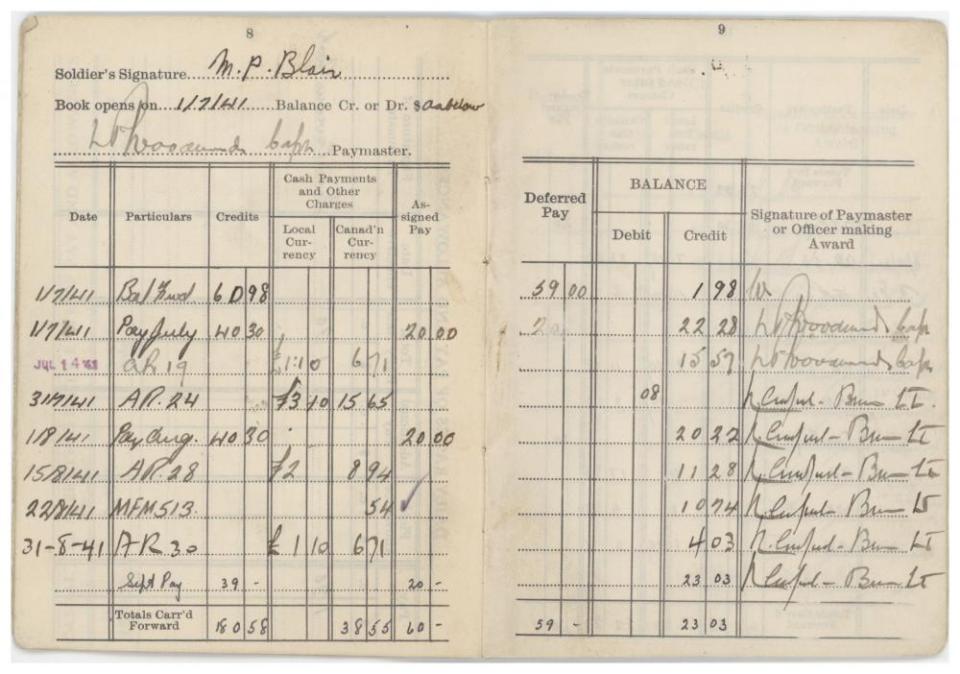 8
Soldier's Signature M. P. Blair
Book opens on 1/7/41 Balance Cr. or Dr. $ as below
Woodwards Capt Paymaster.
Date Particulars Credits Cash Payments and Other Charges Local Cur-rency Canad'n Cur-rency As-signed Pay
1/7/41 Bal Fwd 60 98
1/7/41 Pay July 40 30 20 00
JUL 14 1941 AR 19 £1:10 6 71
31/7/41 A.R. 24 £3 10 15 65
1/8/41 Pay Aug. 40 30 20 00
15/8/41 A.R. 28 £2 8 94
22/8/41 MFM 513. 54 ✓
31-8-41 A R 30 £ 1 10 6 71
Sept Pay 39 - 20 -
Totals Carr'd Forward 180 58 38 55 60 -
9
Deferred Pay BALANCE Debit Credit Signature of Paymaster or Officer making Award
59 00 1 98
22 28 Woodwards Capt
15 57 Woodwards Capt
08 Lt.
20 22 Lt
11 28 Lt
10 74 Lt
4 03 Lt
23 03 Lt
59 - 23 03